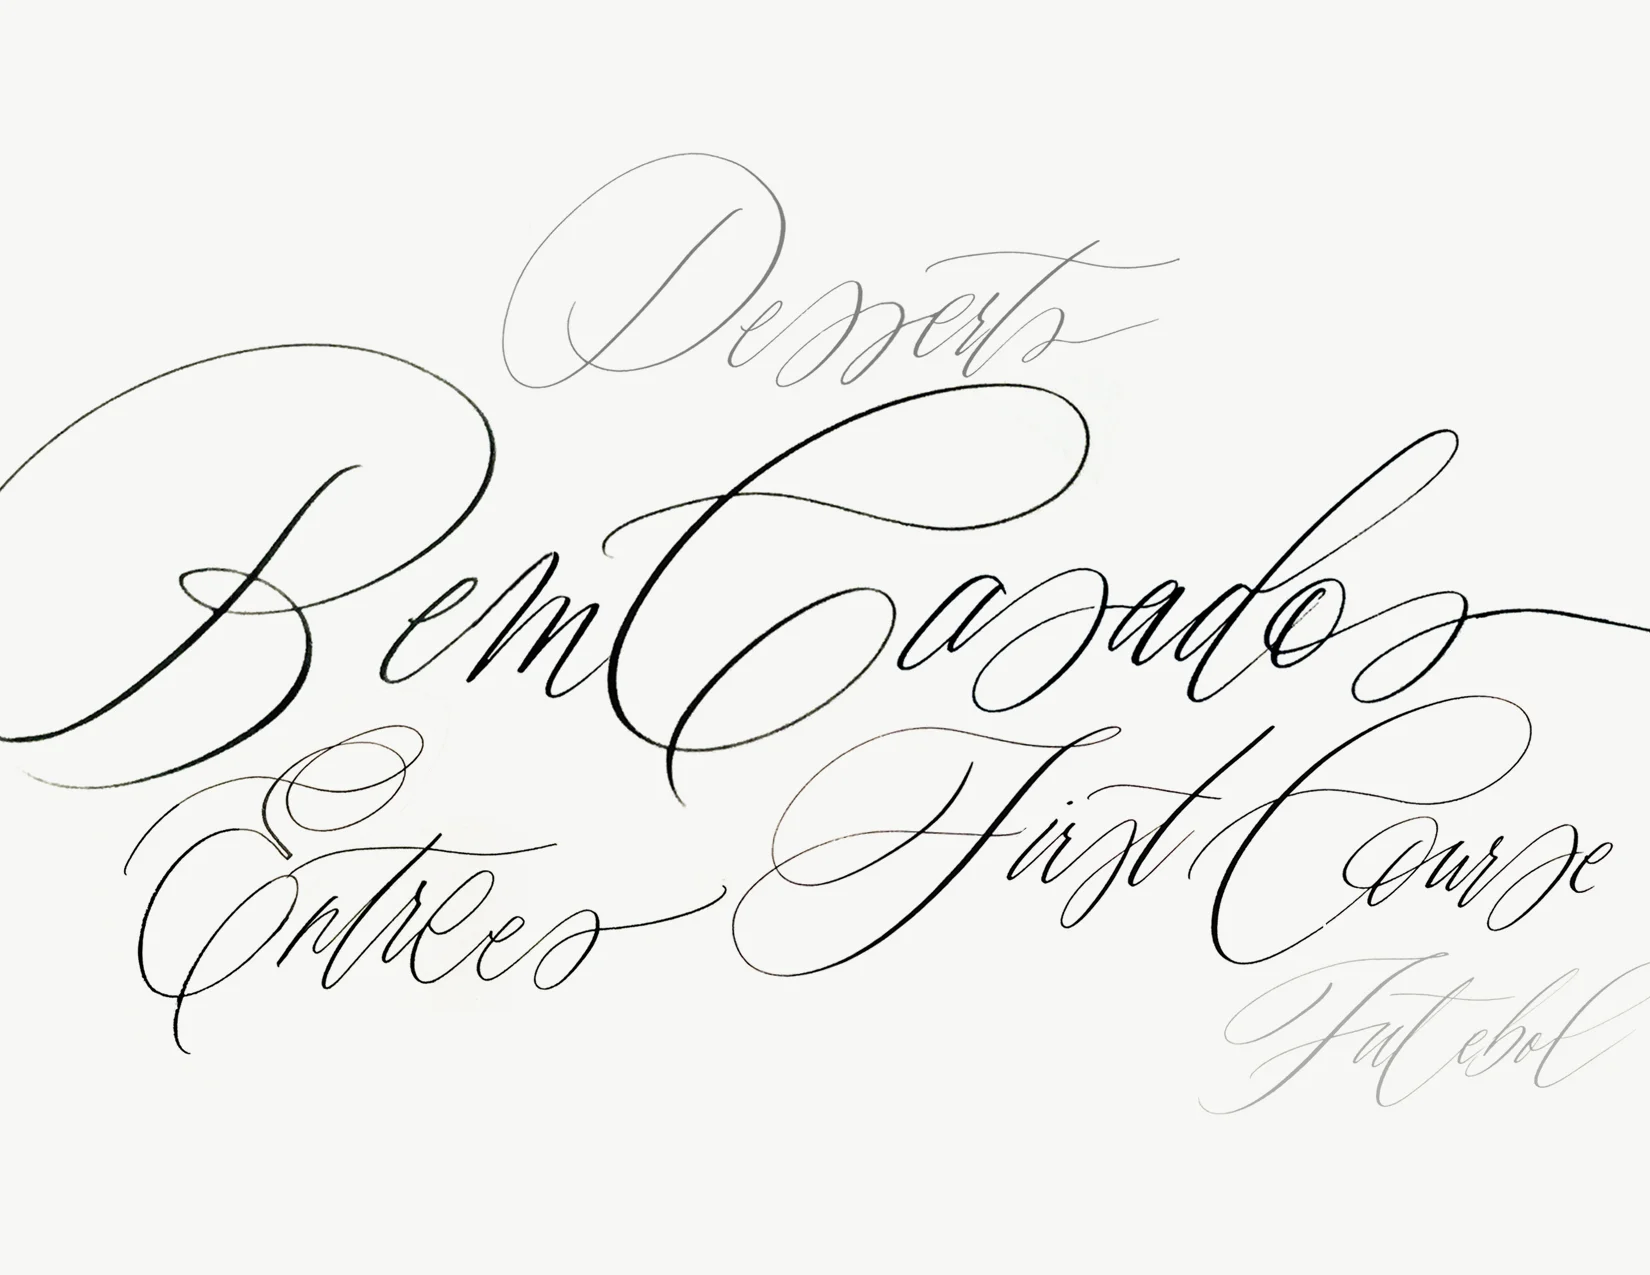 Desserts
Bem Casados
Entrees
First Course
Futebol